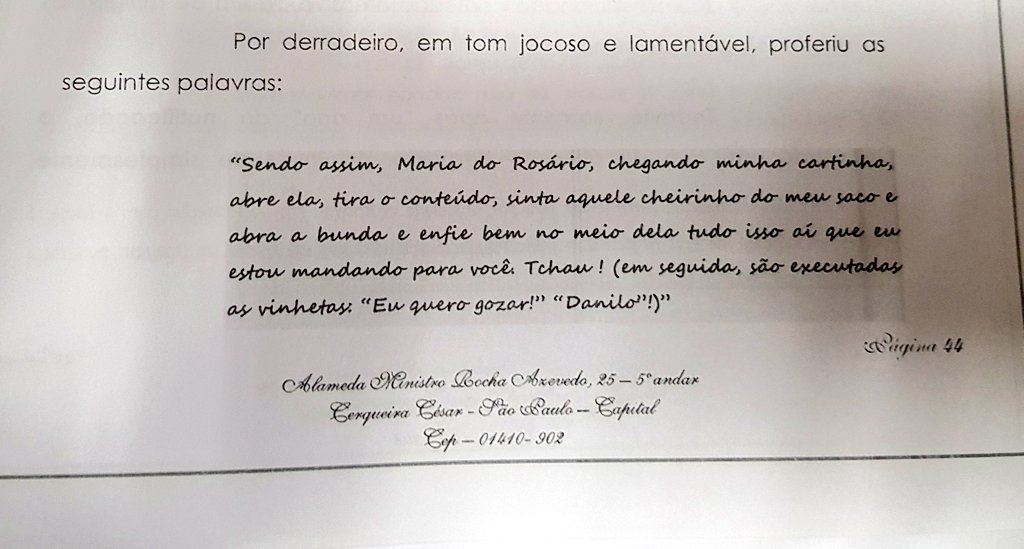 Por derradeiro, em tom jocoso e lamentável, proferiu as
seguintes palavras:
“Sendo assim, Maria do Rosário, chegando minha cartinha,
abre ela, tira o conteúdo, sinta aquele cheirinho do meu saco e
abra a bunda e enfie bem no meio dela tudo isso aí que eu
estou mandando para você. Tchau ! (em seguida, são executadas
as vinhetas: “Eu quero gozar!” “Danilo”!)”
Página 44
Alameda Ministro Rocha Azevedo, 25 – 5º andar
Cerqueira César - São Paulo – Capital
Cep – 01410- 902